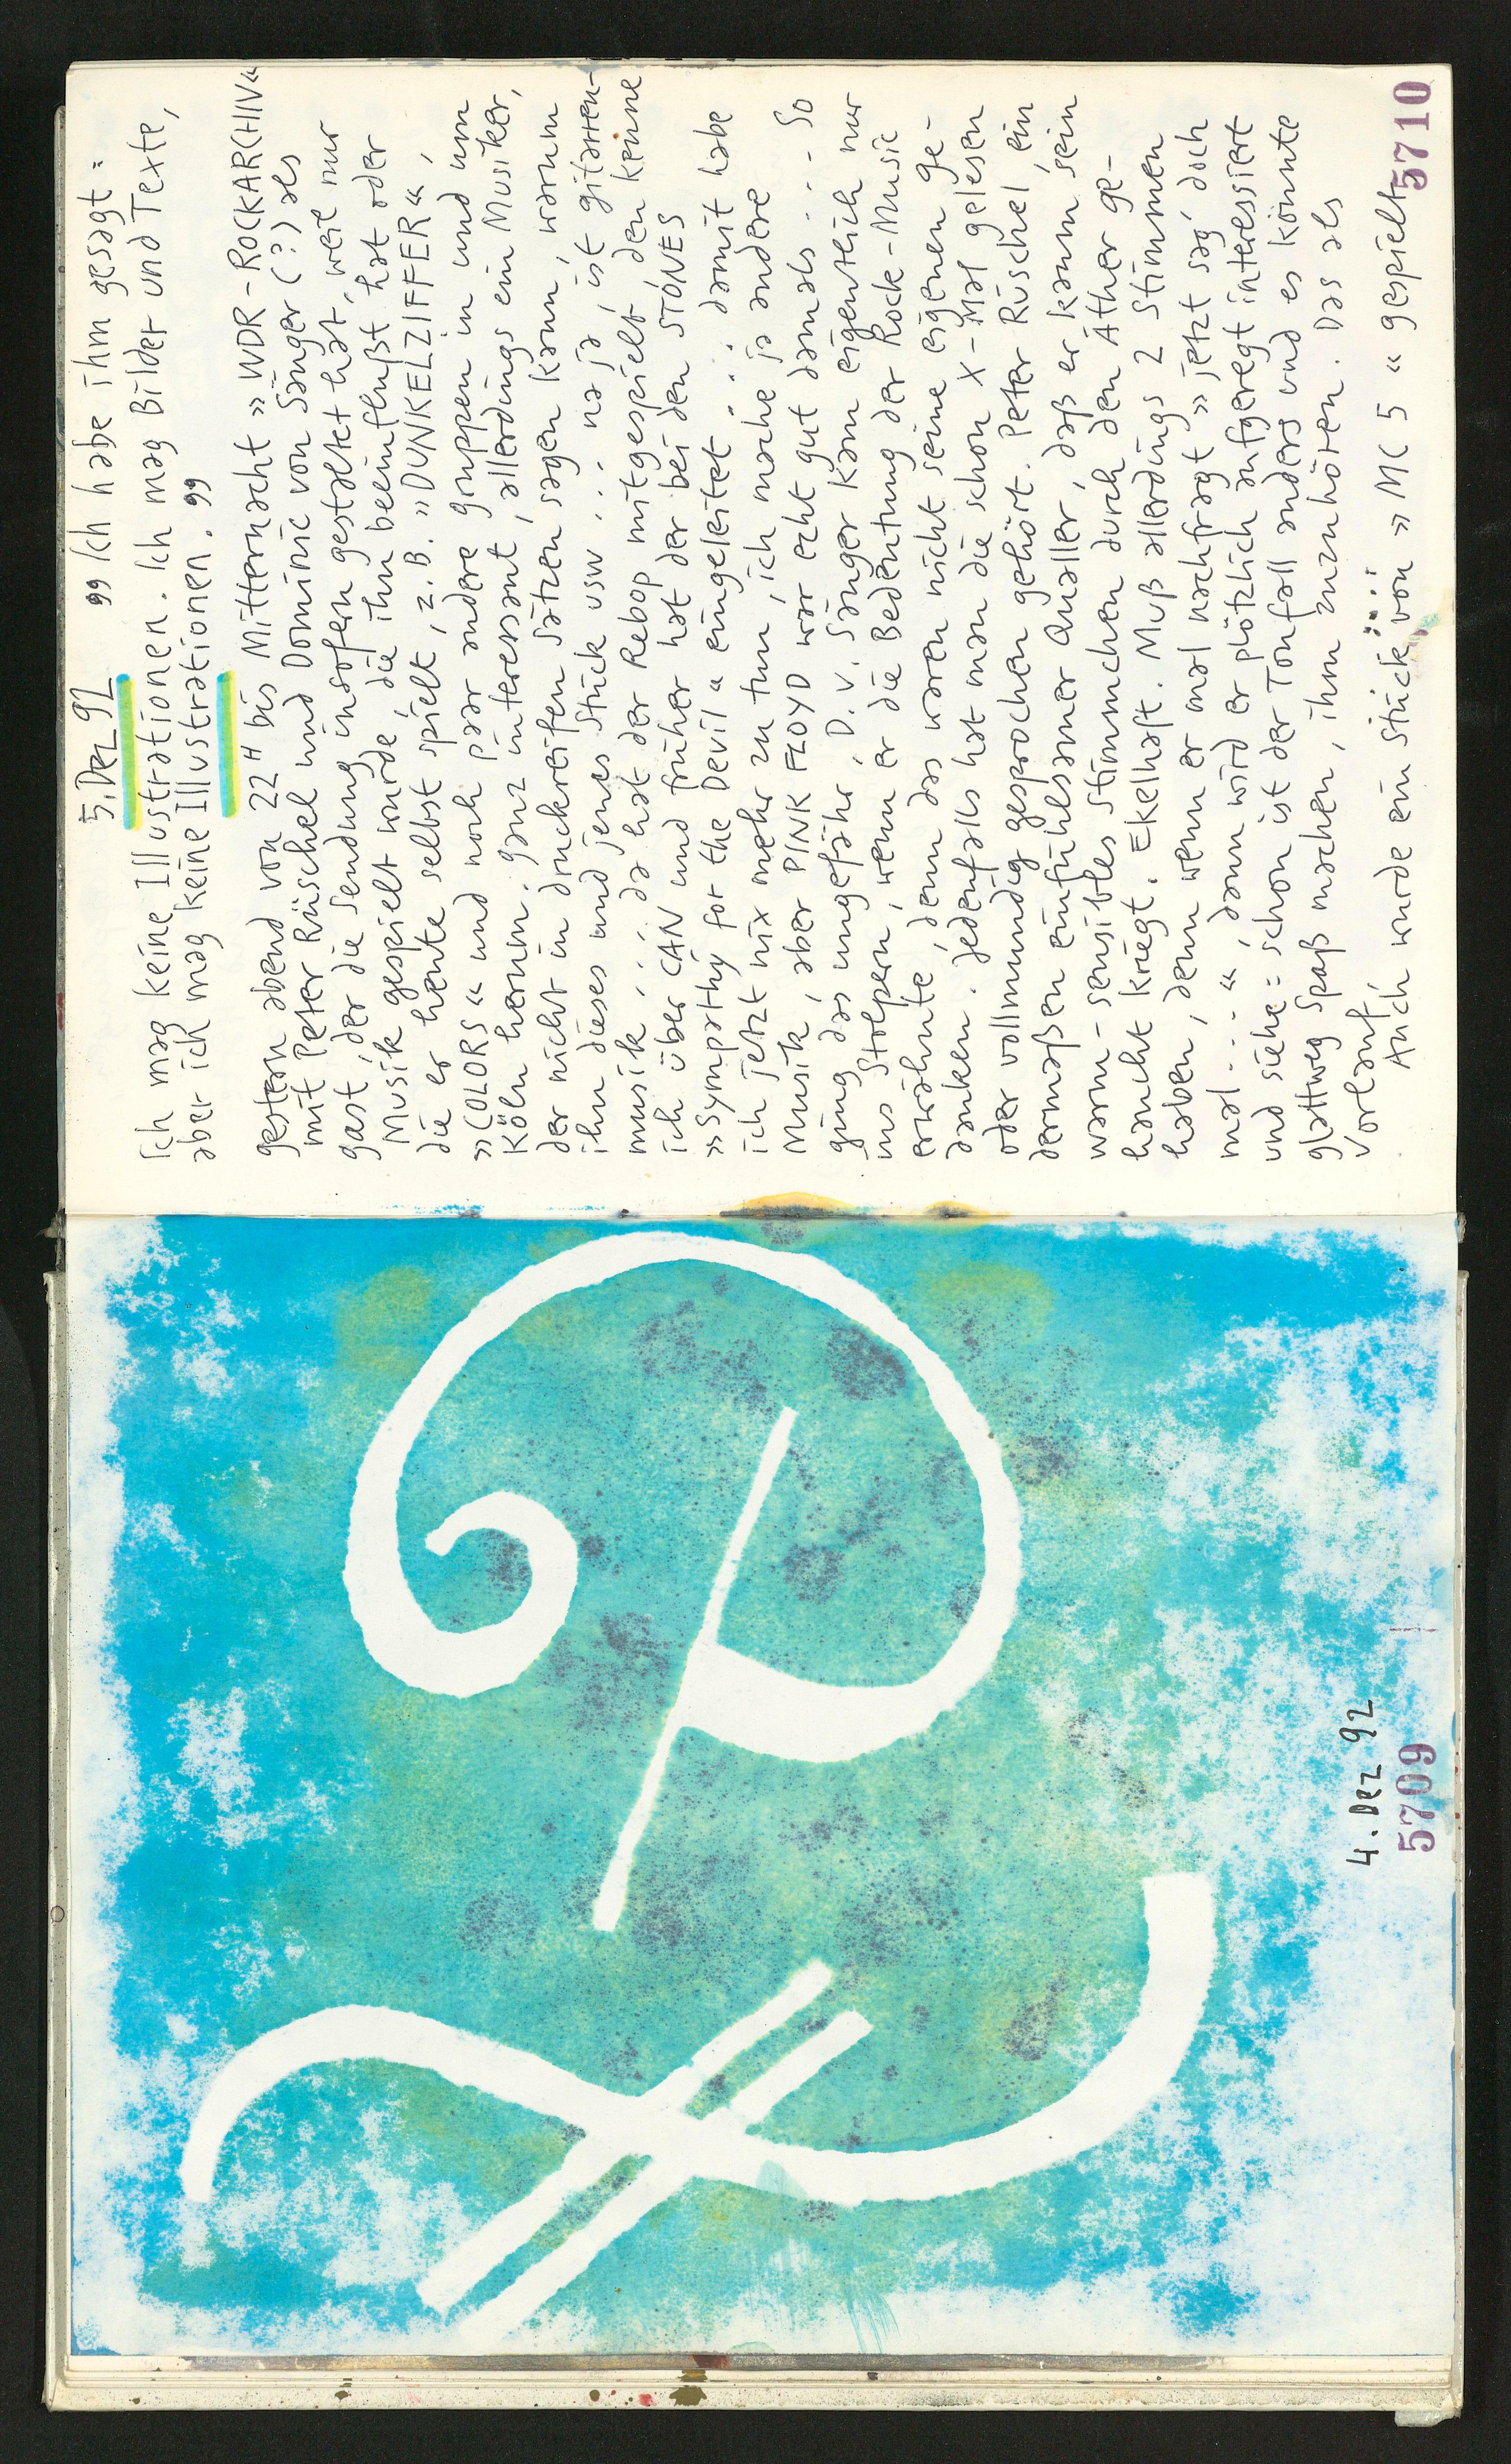 4. Dez 92
5709
5. Dez 92 „Ich habe ihm gesagt =
Ich mag keine Illustrationen. Ich mag Bilder und Texte,
aber ich mag keine Illustrationen."
gestern abend von 22 H bis Mitternacht »WDR-ROCKARCHIV«
mit Peter Rüschel und Dominic von Sänger (?) als
gast, der die Sendung insofern gestaltet hat, weil nur
Musik gespielt wurde, die ihn beeinflußt hat oder
die er heute selbst spielt, z.B. »DUNKELZIFFER«,
»COLORS« und noch paar andere gruppen in und um
Köln herum. ganz interessant, allerdings ein Musiker,
der nicht in druckreifen Sätzen sagen kann, warum
ihn dieses und jenes Stück usw... na ja, ist gitarren-
musik... da hat der Rebop mitgespielt, den kenne
ich über CAN und früher hat der bei den STONES
»Sympathy for the Devil« eingeleitet... damit habe
ich jetzt nix mehr zu tun, ich mache ja andere
Musik, aber PINK FLOYD war echt gut damals... So
ging das ungefähr. D.v. Sänger kam eigentlich nur
ins Stolpern, wenn er die Bedeutung der Rock-Music
erwähnte, denn das waren nicht seine eigenen ge-
danken. Jedenfalls hat man die schon X-Mal gelesen
oder vollmundig gesprochen gehört. Peter Rüschel, ein
dermaßen einfühlsamer Qualler, daß er kaum sein
warm-sensibles Stimmchen durch den Äther ge-
haucht kriegt. Ekelhaft. Muß allerdings 2 Stimmen
haben, denn wenn er mal nachfragt »jetzt sag' doch
mal...«, dann wird er plötzlich aufgeregt interessiert
und siehe = schon ist der Tonfall anders und es könnte
glattweg Spaß machen, ihm zuzuhören. Das als
Vorlauf.
Auch wurde ein Stück von »MC 5« gespielt
5710